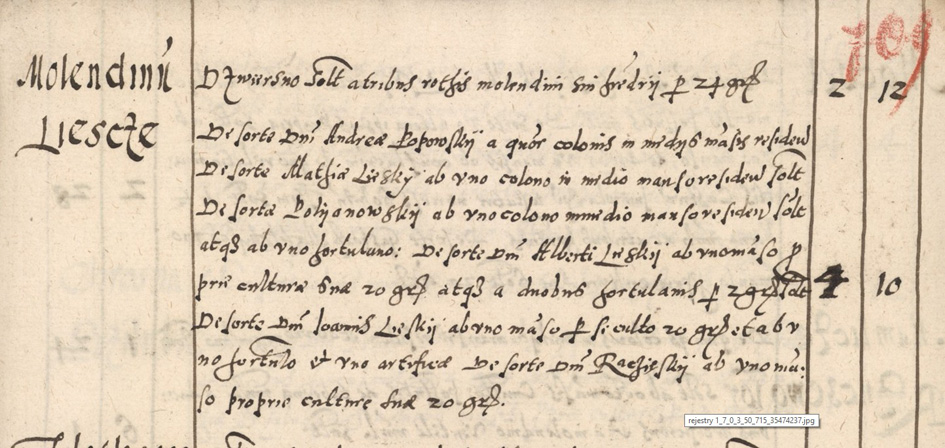 191
Molendinū
Dzwiersno solt a tribus rothis molendini sui hredrij p 24 grß
2 12
Liescze
De sorte Dni Andreæ Popowskij a quor colonis in medys māsis residen
De sorte Mathiæ Lieskij ab vno colono in medio manso residen solt
De sorte Polijanowskij ab vno colono in medio manso residen solt
atqȝ ab vno hortulano: De sorte Dni Alberti Lieskij ab vno māso p
prie culturæ suæ 20 grß atqȝ a duobus hortulanis p 2 grß solt
4 10
De sorte Dni Joannis Lieskij ab vno māso p se culto 20 grß et ab v
no hortulo et vno artificæ De sorte Dni Raczieskij ab vno mā:
so proprie culture suæ 20 grß.
rejestry 1_7_0_3_50_715_35474237.jpg